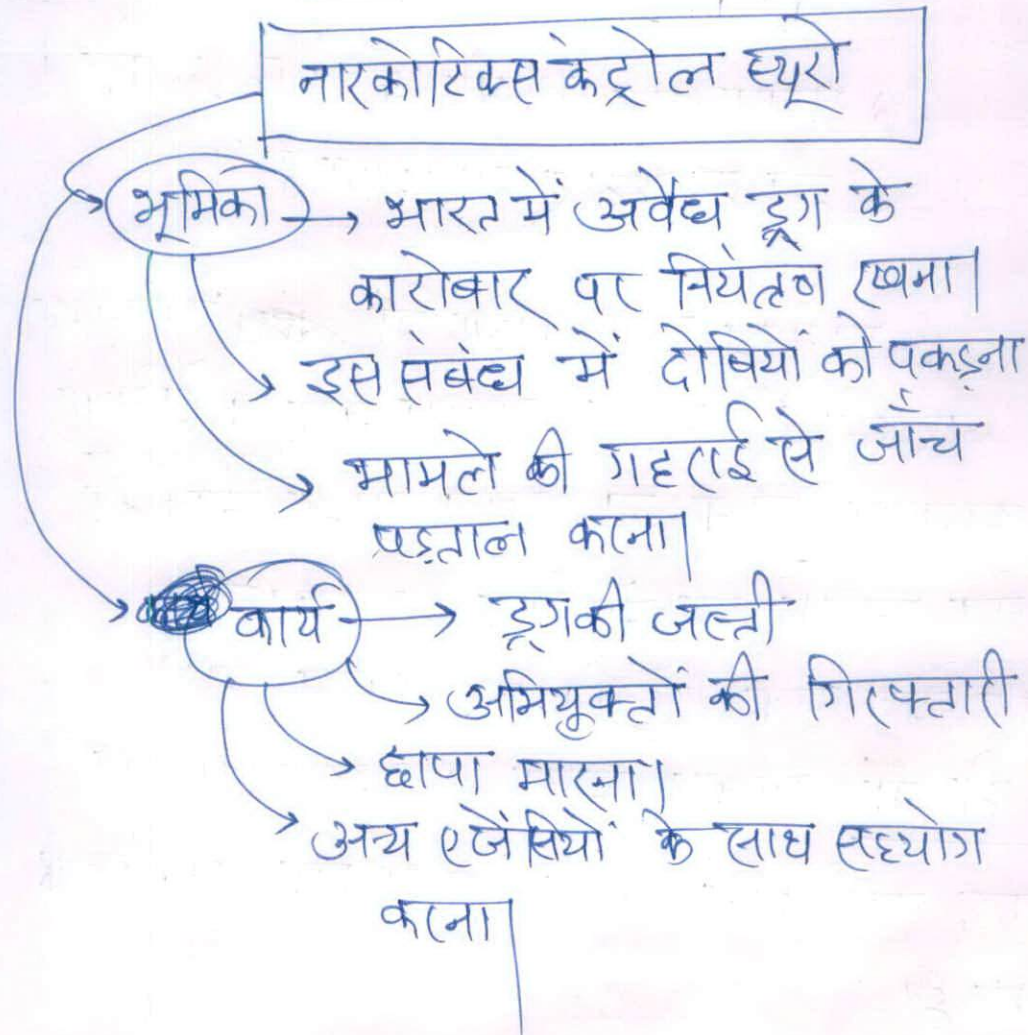 नारकोटिक्स कंट्रोल ब्यूरो
भूमिका → भारत में अवैध ड्रग के
कारोबार पर नियंत्रण रखना।
इस संबंध में दोषियों को पकड़ना
मामले की गहराई से जाँच
पड़ताल करना।
कार्य → ड्रग की जब्ती
अभियुक्तों की गिरफ्तारी
छापा मारना।
अन्य एजेंसियों के साथ सहयोग
करना।